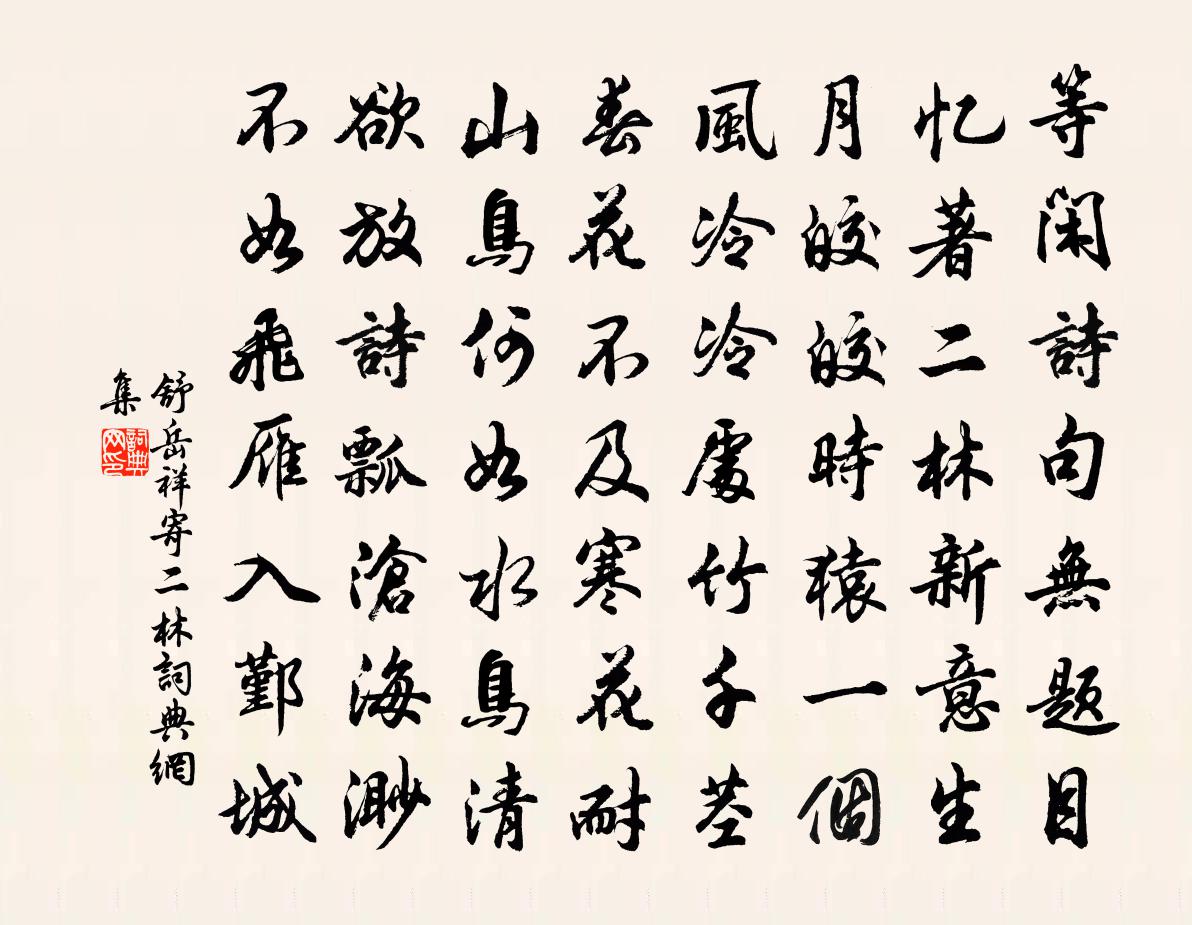 等閑詩句無題目
忆著二林新意生
月皎皎時猿一個
風冷冷處竹千莖
春花不及寒花耐
山鳥何如水鳥清
欲放詩瓢滄海渺
不如飛雁入鄞城
舒岳祥寄二林詞典網
集
詞典
网印